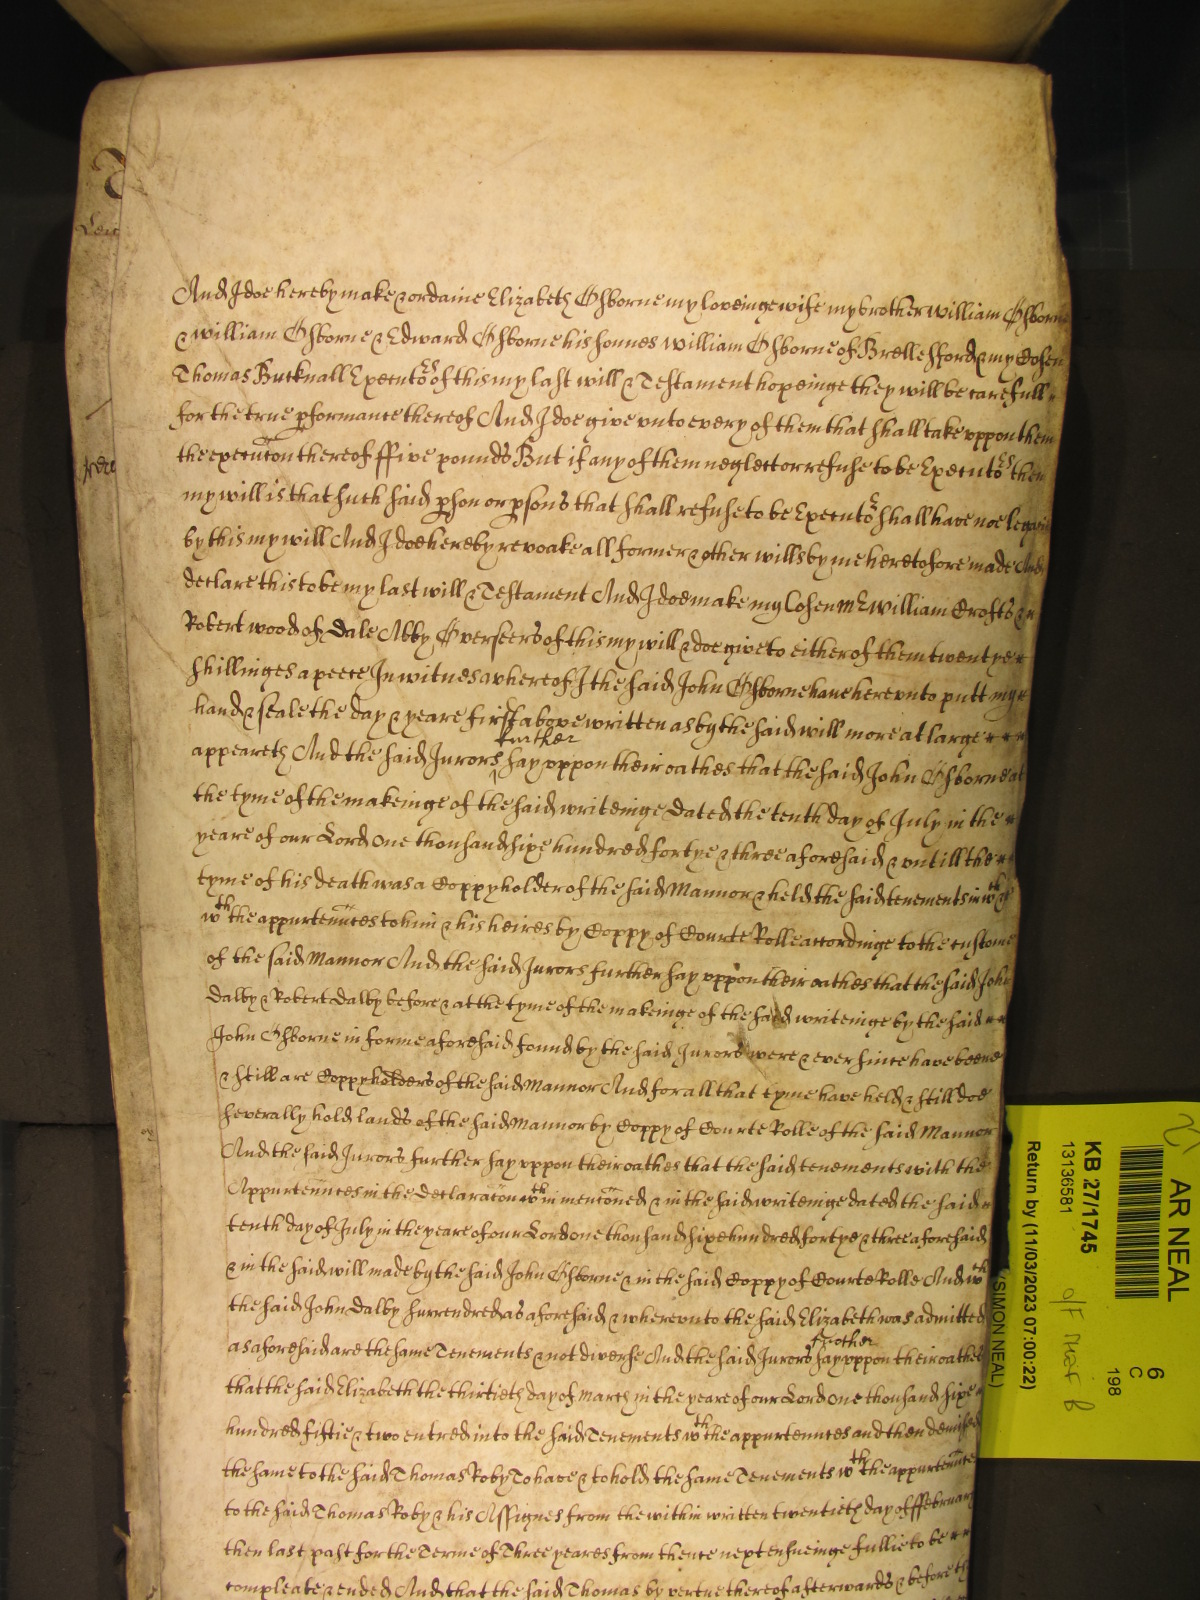 And I doe hereby make & ordaine Elizabeth Osborne my loveinge wife my brother William Osborne
& William Osborne & Edward Osborne his sonnes William Osborne of Brellesford & my Cosen
Thomas Bucknall Executors of this my last will & Testament hopeinge they will be carefull
for the true pformance thereof And I doe give unto every of them that shall take uppon them
the execucon thereof ffive pounds But if any of them neglect or refuse to be Executors then
my will is that such said pson or psons that shall refuse to be Executor shall have noe legacie
by this my will And I doe hereby revoake all former & other wills by me heretofore made And
declare this to be my last will & Testament And I doe make my Cosen Mr William Crofts &
Robert wood of Dale Abby Overseers of this my will & doe give to either of them twentye
shillinges a peece In witnes whereof I the said John Osborne have hereunto putt my
hand & seale the day & yeare first above written as by the said will more at large
further
appeareth And the said Jurors say uppon their oathes that the said John Osborne at
the tyme of the makeinge of the said writeinge dated the tenth day of July in the
yeare of our Lord One thousand sixe hundred fortye & three aforesaid & untill the
tyme of his death was a Coppyholder of the said Mannor & held the said tenements in wch &c
wth the appurtennces to him & his heires by Coppy of Courte Rolle accordinge to the custome
of the said Mannor And the said Jurors further say uppon their oathes that the said John
Dalby & Robert Dalby before & at the tyme of the makeinge of the said writeinge by the said
John Osborne in forme aforesaid found by the said Jurors were & ever since have beene
& still are Coppyholders of the said Mannor And for all that tyme have held & still doe
severally hold lands of the said Mannor by Coppy of Courte Rolle of the said Mannor
And the said Jurors further say uppon their oathes that the said tenements with the
Appurtennces in the declaracon wthin menconed & in the said writeinge dated the said
tenth day of July in the yeare of our Lord one thousand sixe hundred fortye & three aforesaid
& in the said will made by the said John Osborne & in the said Coppy of Courte Rolle And wch
the said John Dalby surrendred as aforesaid & whereunto the said Elizabeth was admitted
further
as aforesaid are the same Tenements & not diverse And the said Jurors say uppon their oathes
that the said Elizabeth the thirtieth day of March in the yeare of our Lord one thousand sixe
hundred fiftie & two entred into the said Tenements wth the appurtennces and then demised
the same to the said Thomas Roby To have & to hold the same Tenements wth the appurtennces
to the said Thomas Roby & his Assignes from the within written twentieth day of ffebruary
then last past for the Terme of Three yeares from thence next ensueinge fullie to be
compleate & ended And that the said Thomas by vertue thereof afterwards & before the
AR NEAL
KB 27/1745
13136581
Return by (11/03/2023 07:00:22)
(SIMON NEAL)
6
C
198